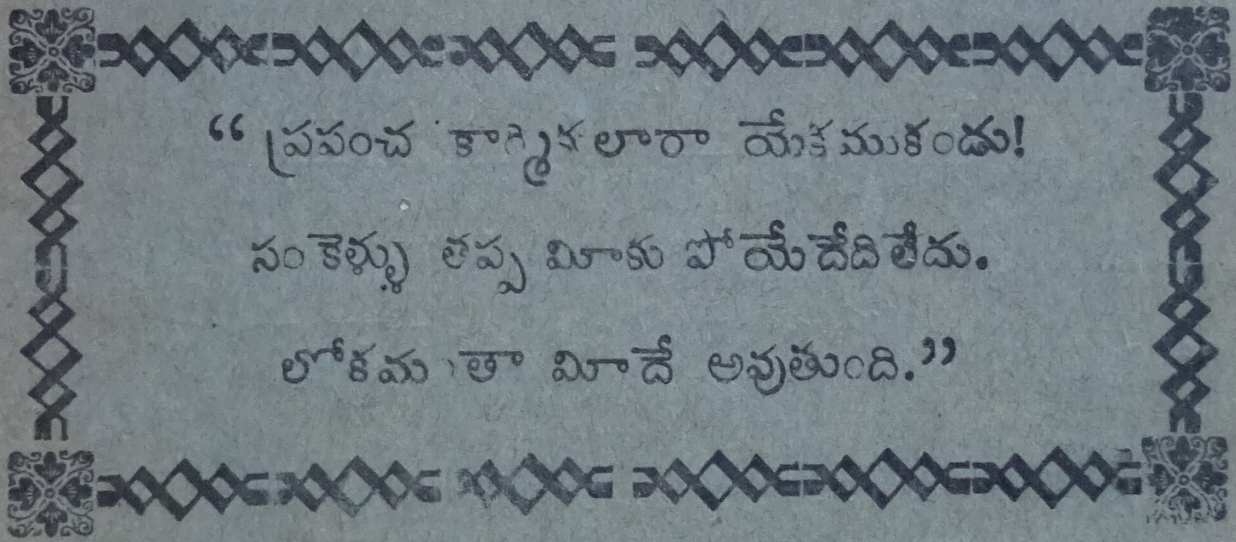 “ ప్రపంచ కార్మికులారా యేకముకండు!
సంకెళ్ళు తప్ప మీకు పోయేదేదిలేదు.
లోకమంతా మీదే అవుతుంది.”